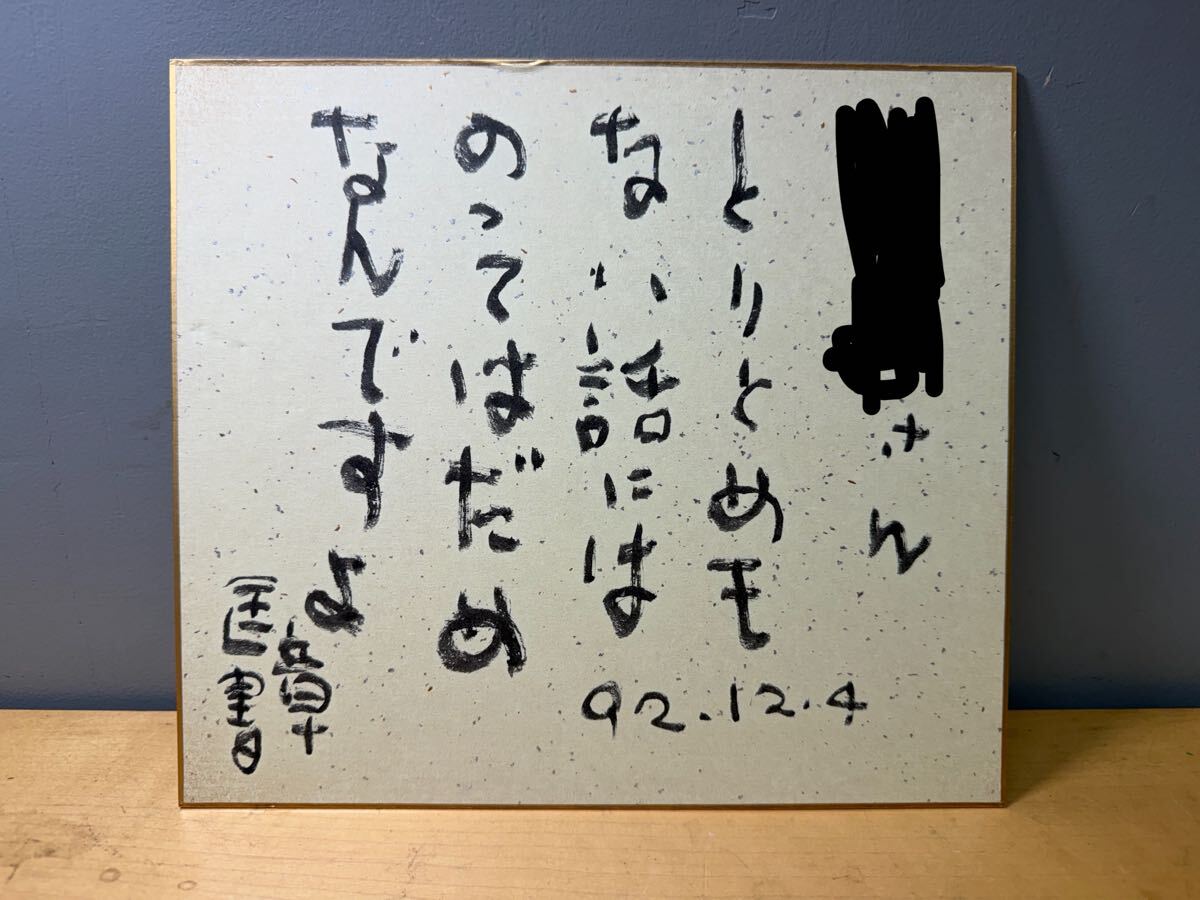 さん
とりとめも
ない話には
のってはだめ
なんですよ
92.12.4
章
医書